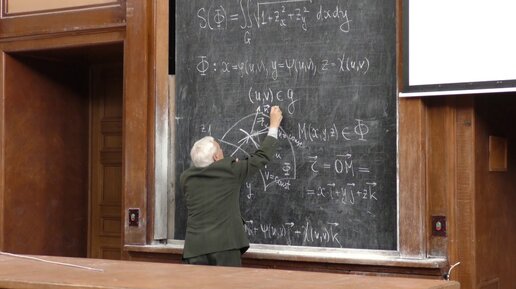 S(Φ) = ∬_G √(1 + z_x² + z_y²) dxdy
Φ: x = φ(u,v), y = ψ(u,v), z = χ(u,v)
(u,v) ∈ g
M(x,y,z) ∈ Φ
r⃗ = OM⃗ =
= x i⃗ + y j⃗ + z k⃗
z
u
Φ
v = const
y
+ ψ(u,v) j⃗ + χ(u,v) k⃗